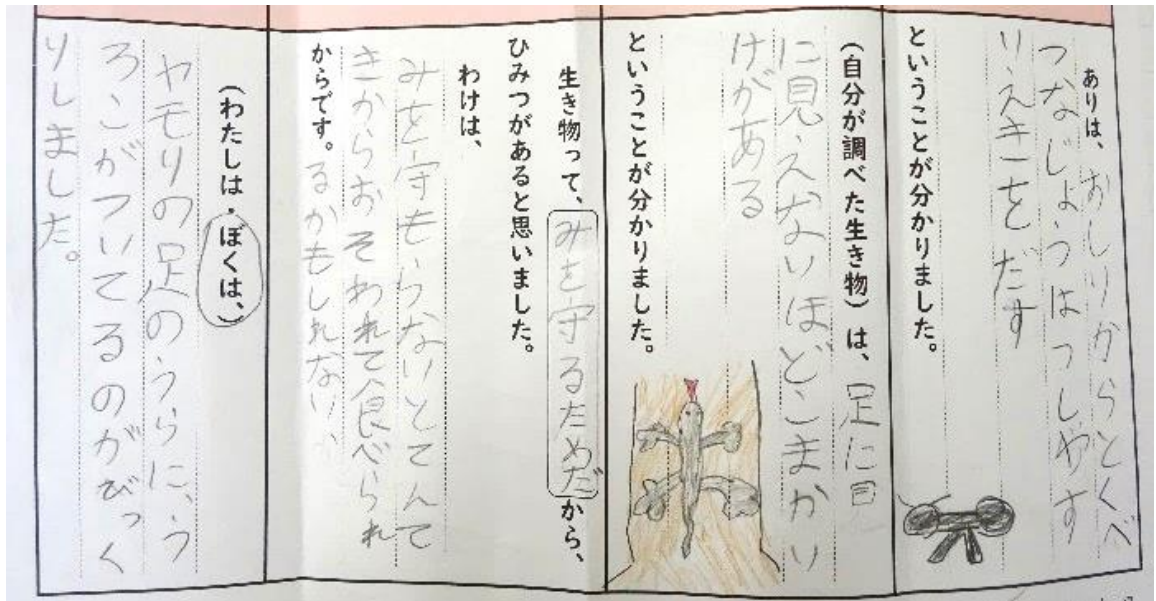 ありは、おしりからとくべ
つなじょうはつしやす
りえきをだす
ということが分かりました。
(自分が調べた生き物)は、足に目
に見えないほどこまかい
けがある
ということが分かりました。
生き物って、みを守るためだから、
ひみつがあると思いました。
わけは、
みを守もらないとてんて
きからおそわれて食べられ
るかもしれない
からです。
(わたしは・ぼくは、)
ヤモリの足のうらに、う
ろこがついてるのがびっく
りしました。